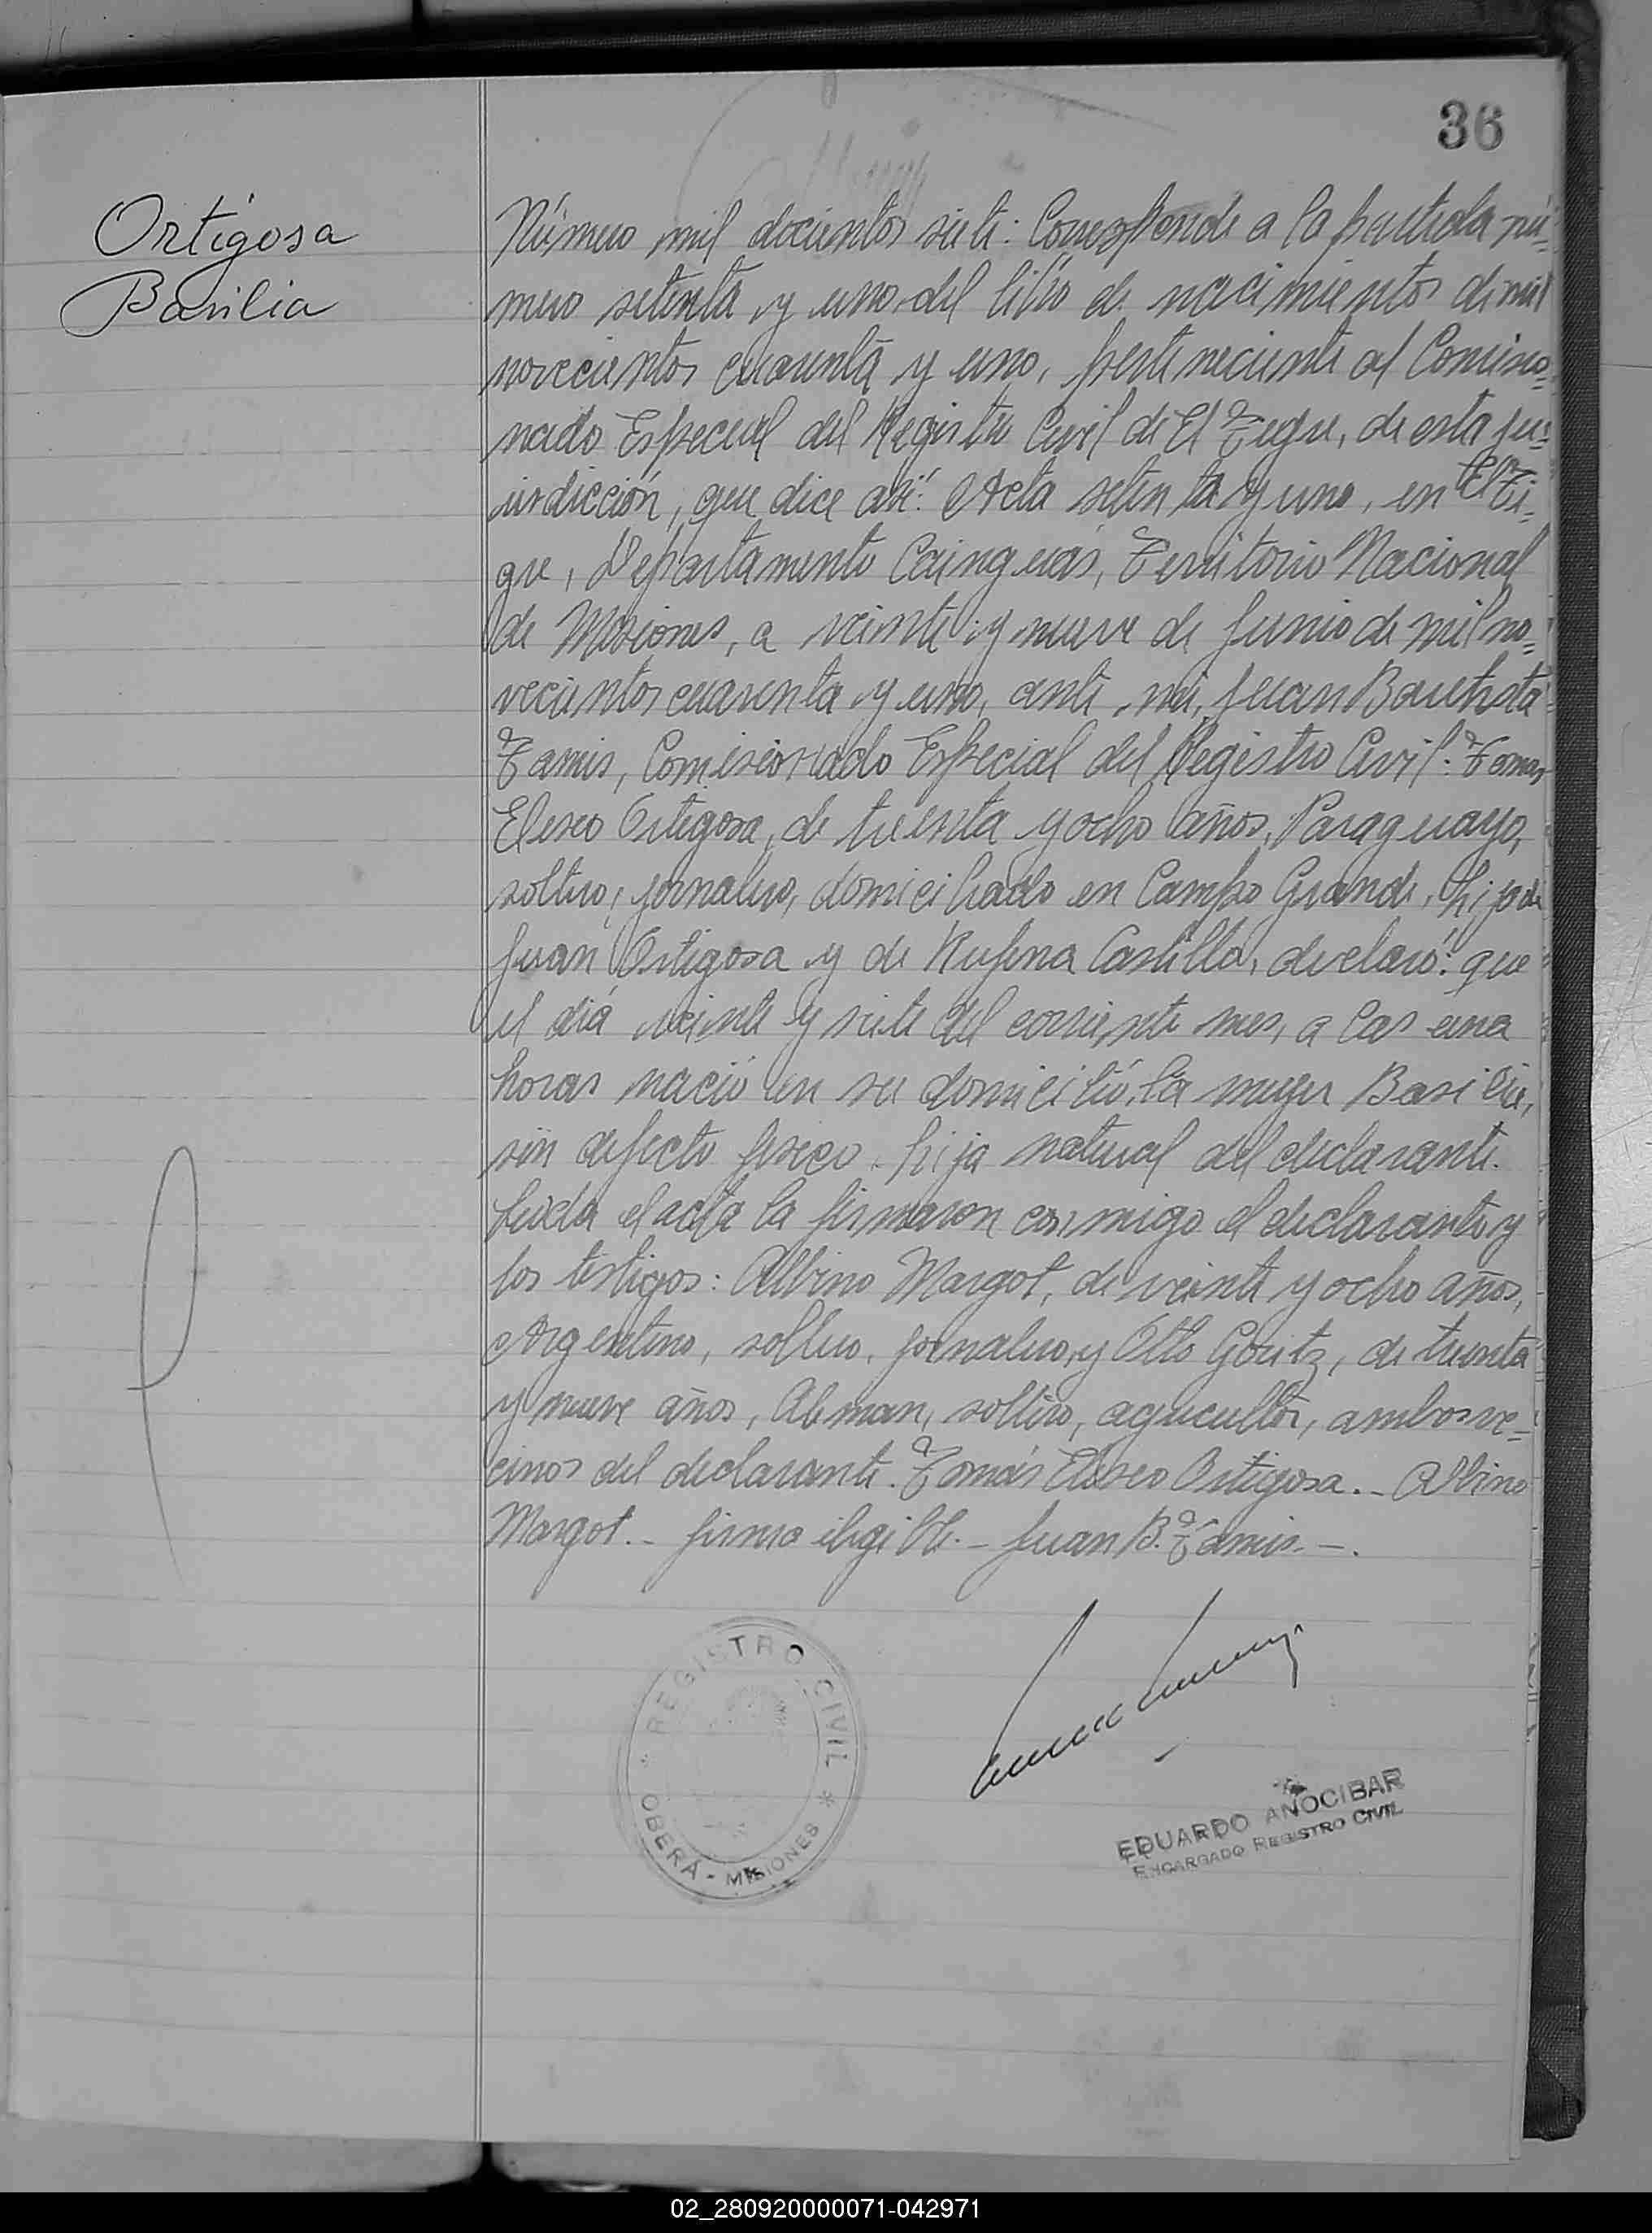 36
Ortigosa
Basilia
Número mil docientos siete: Corresponde a la partida nú=
mero setenta y uno, del libro de nacimientos de mil
novecientos cuarenta y uno, perteneciente al Comisio=
nado Especial del Registro Civil de El Tigre, de esta ju=
risdicción, que dice así: Acta setenta y uno, en El Ti=
gre, Departamento Cainguás, Territorio Nacional
de Misiones, a veinte y nueve de Junio de mil no=
vecientos cuarenta y uno, ante mi, Juan Bautista
Tamis, Comisionado Especial del Registro Civil: Tomas
Eliseo Ortigosa, de treinta y ocho años, Paraguayo,
soltero, jornalero, domiciliado en Campo Grande, hijo de
Juan Ortigosa y de Rufina Castillo, declaró: que
el día veinte y siete del corriente mes, a las una
horas nació en su domicilio, la mujer Basilia,
sin defecto fisico. hija natural del declarante.
Leida el acta la firmaron conmigo el declarante y
los testigos: Albino Margot, de veinte y ocho años,
Argentino, soltero, jornalero, y Otto Goritz, de treinta
y nueve años, Aleman, soltero, agricultor, ambos ve=
cinos del declarante. Tomás Eliseo Ortigosa.- Albino
Margot.- firma ilegible.- Juan B. Tamis.-.
REGISTRO CIVIL
OBERÁ - MISIONES
EDUARDO AÑOCIBAR
ENCARGADO REGISTRO CIVIL
02_280920000071-042971